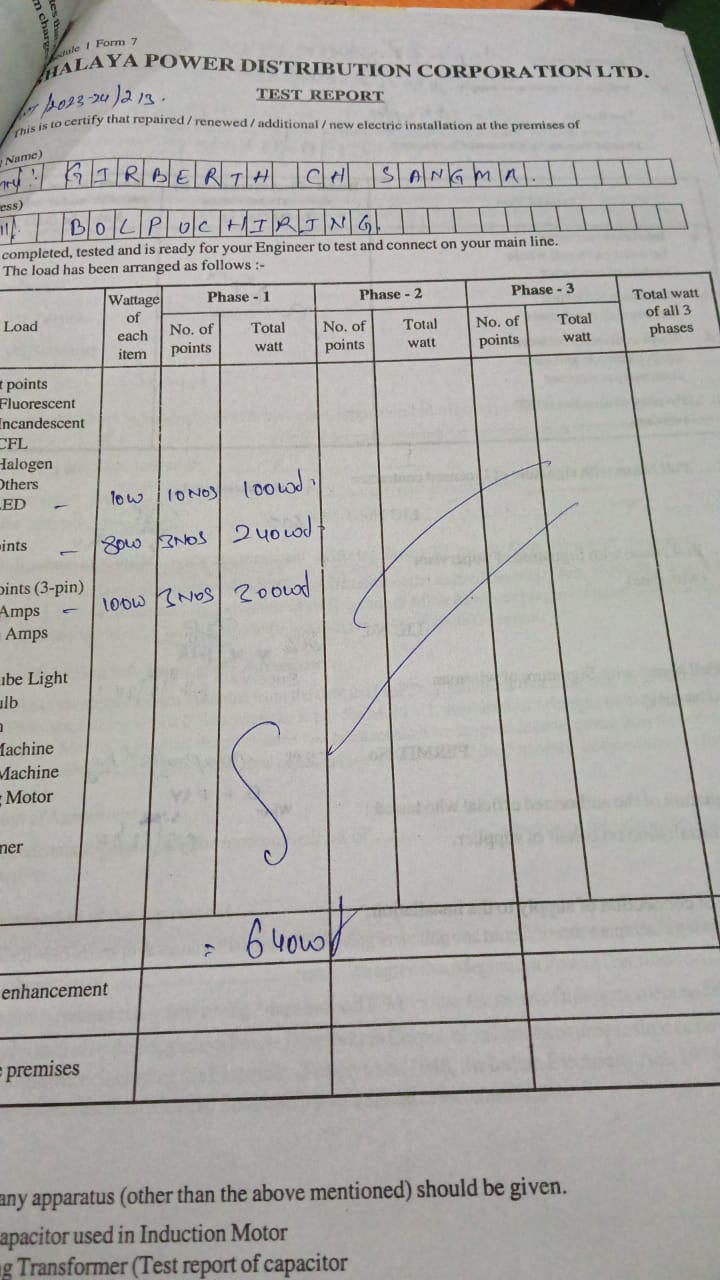 1 Form 7
HALAYA POWER DISTRIBUTION CORPORATION LTD.
TEST REPORT
/2023-24/213.
This is to certify that repaired / renewed / additional / new electric installation at the premises of
Name)
GIRBERTH CH SANGMA.
ess)
BOLPUCHIRING.
completed, tested and is ready for your Engineer to test and connect on your main line.
The load has been arranged as follows :-
Load
Wattage of each item
Phase - 1
Phase - 2
Phase - 3
Total watt of all 3 phases
No. of points
Total watt
No. of points
Total watt
No. of points
Total watt
t points
Fluorescent
Incandescent
CFL
Halogen
Others
ED - 10W 10NOS 100wd
ints - 80W 3NOS 240wd
oints (3-pin)
Amps - 100W 3NOS 300wd
Amps
ube Light
ulb
Machine
Machine
Motor
ner
= 640wd
enhancement
premises
any apparatus (other than the above mentioned) should be given.
apacitor used in Induction Motor
g Transformer (Test report of capacitor